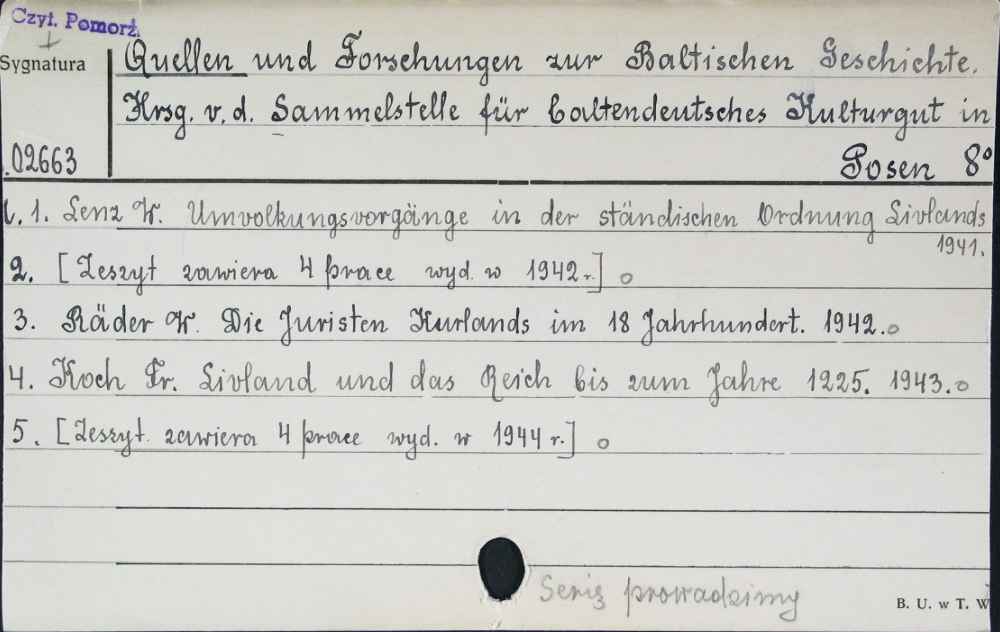 Czyt. Pomorz.
Sygnatura
Quellen und Forschungen zur Baltischen Geschichte.
Hrsg. v. d. Sammelstelle für baltendeutsches Kulturgut in
.02663
Posen 8°
1. Lenz W. Umvolkungsvorgänge in der ständischen Ordnung Livlands
1941.
2. [Zeszyt zawiera 4 prace wyd. w 1942 r.] o
3. Räder W. Die Juristen Kurlands im 18 Jahrhundert. 1942. o
4. Koch Fr. Livland und das Reich bis zum Jahre 1225. 1943. o
5. [Zeszyt zawiera 4 prace wyd. w 1944 r.] o
Serię prowadzimy
B. U. w T. W